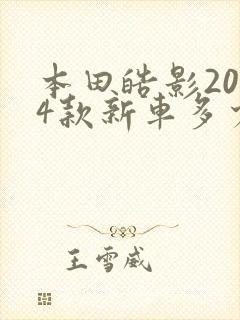 本田皓影20
4款新車多
王雪威